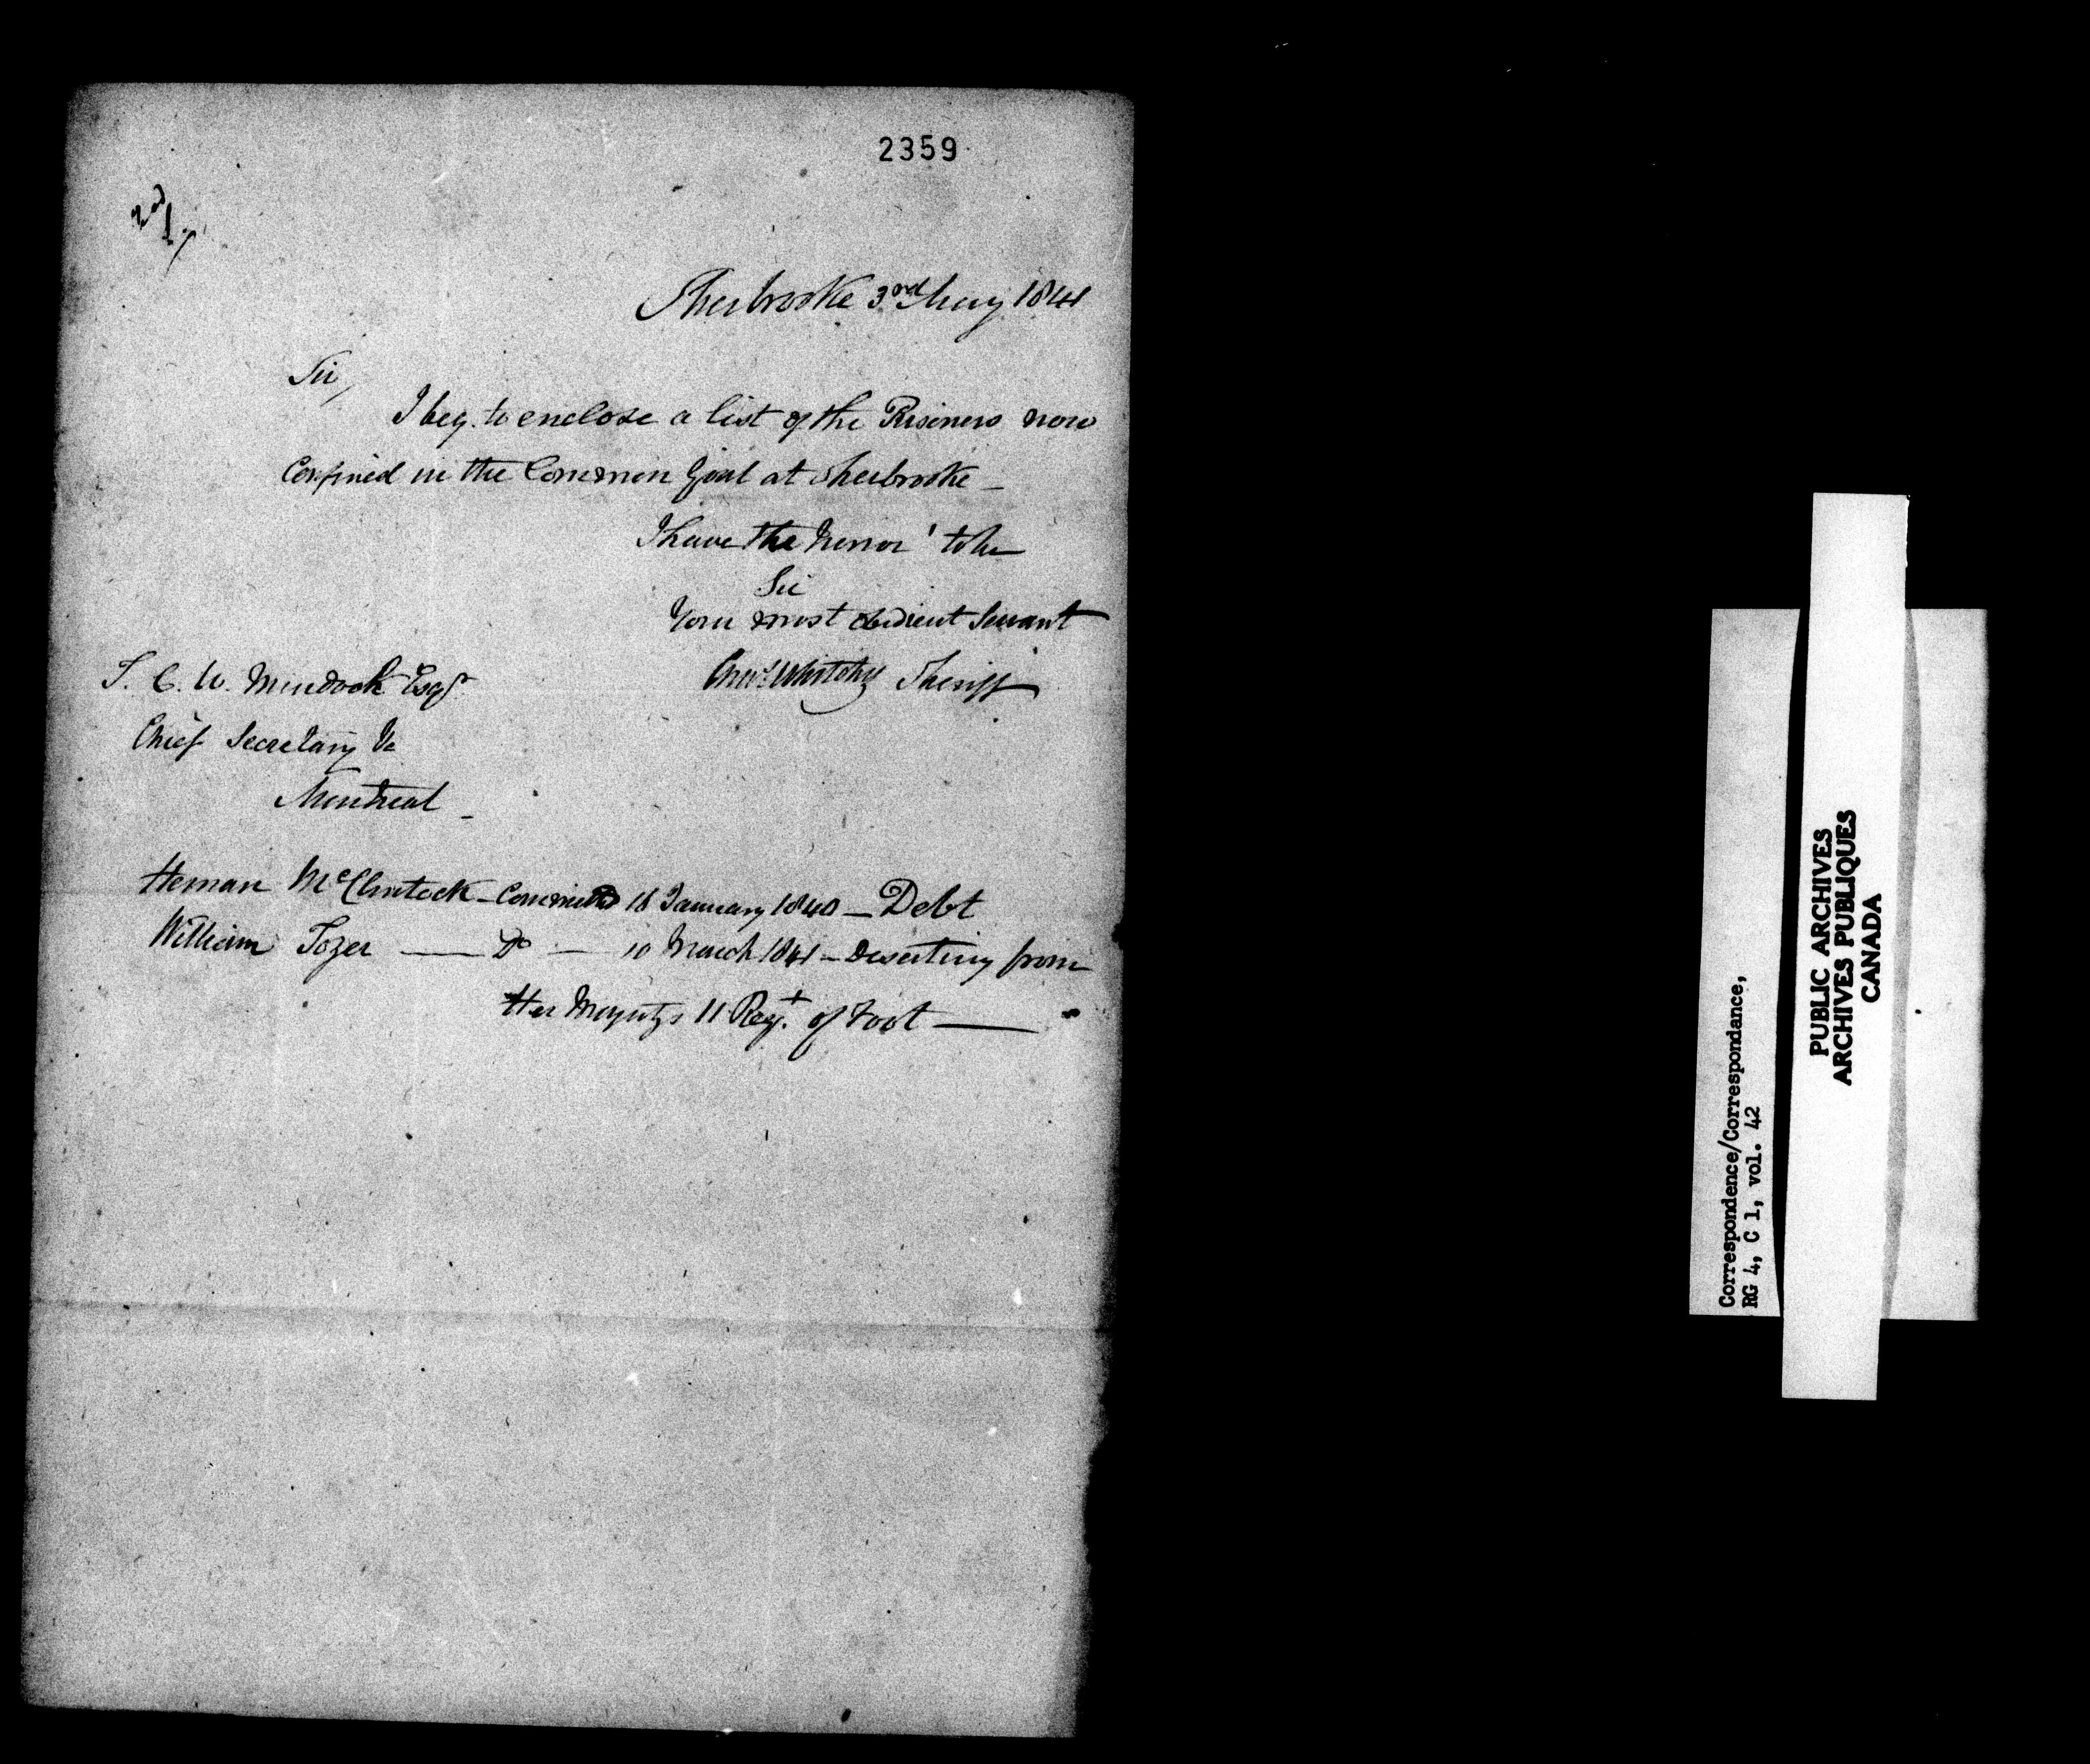 2359
Sherbrooke 3rd May 1841
Sir,
I beg to enclose a list of the Prisiners now
Confined in the Common Goal at Sherbrooke _
I have the honor to be
Sir
Your most obedient Servant
Whitcher Sheriff
T. C. W. Murdock Esqr
Chief Secretary &c
Montreal _
Heman McClintock _ Committed 18 January 1840 _ Debt
William Tozer — Do — 10 March 1841 _ Deserting from
Her Majestys 11 Regt. of Foot —
Correspondence/Correspondance,
RG 4, C 1, vol. 42
PUBLIC ARCHIVES
ARCHIVES PUBLIQUES
CANADA